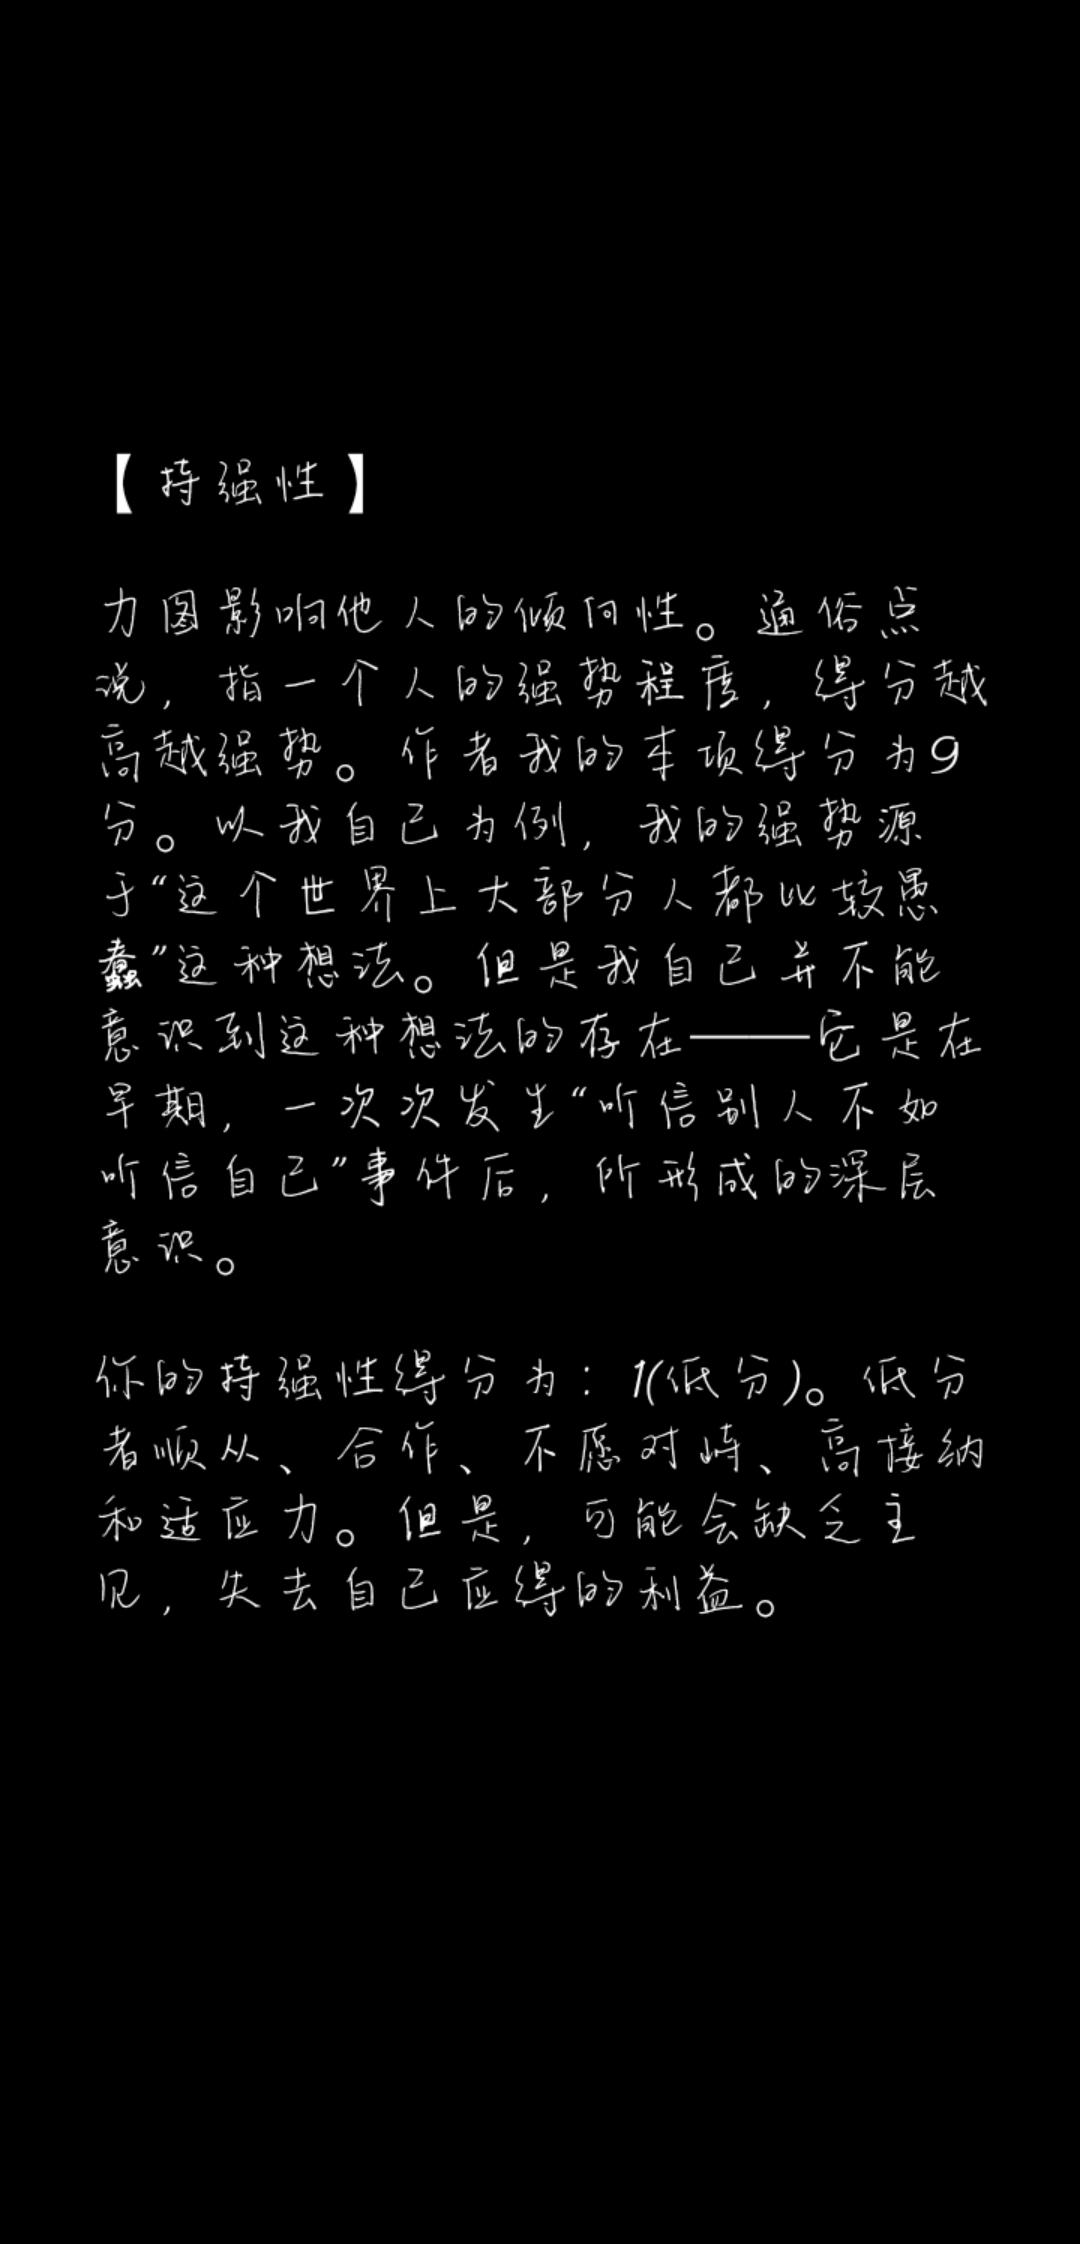 【持强性】
力图影响他人的倾向性。通俗点
说，指一个人的强势程度，得分越
高越强势。作者我的本项得分为9
分。以我自己为例，我的强势源
于“这个世界上大部分人都比较愚
蠢”这种想法。但是我自己并不能
意识到这种想法的存在——它是在
早期，一次次发生“听信别人不如
听信自己”事件后，所形成的深层
意识。
你的持强性得分为：1(低分)。低分
者顺从、合作、不愿对峙、高接纳
和适应力。但是，可能会缺乏主
见，失去自己应得的利益。